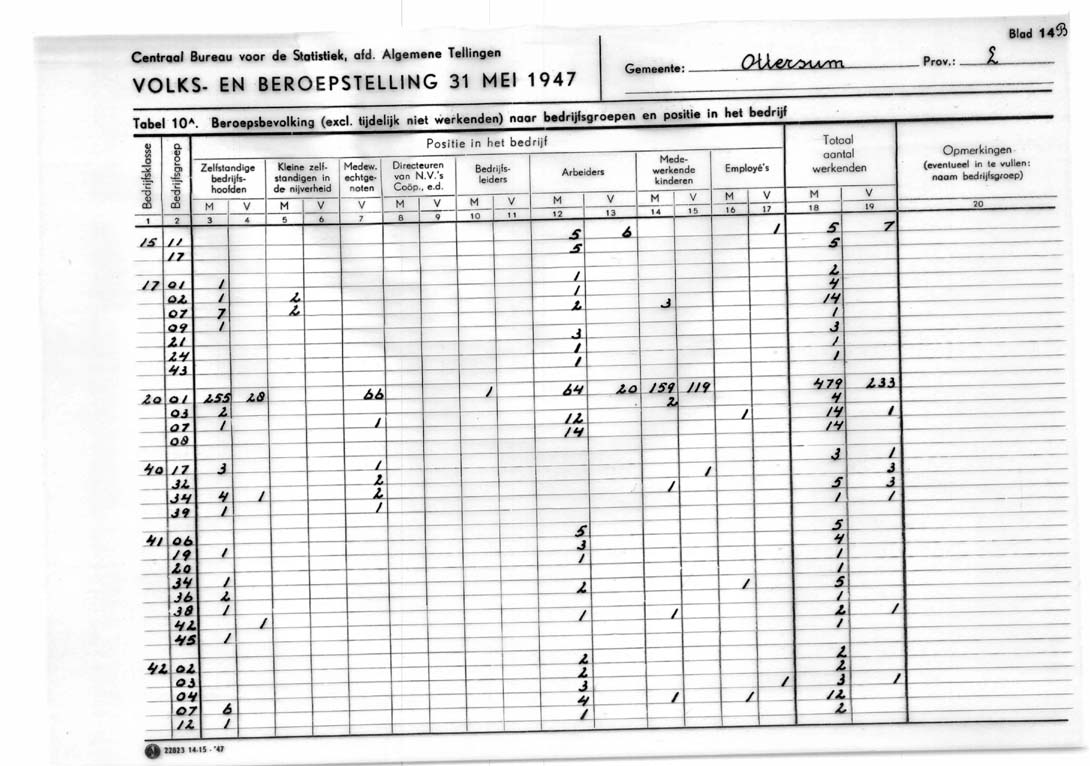 Blad 14B
Centraal Bureau voor de Statistiek, afd. Algemene Tellingen
VOLKS- EN BEROEPSTELLING 31 MEI 1947
Gemeente: Ottersum Prov.: L
Tabel 10A. Beroepsbevolking (excl. tijdelijk niet werkenden) naar bedrijfsgroepen en positie in het bedrijf
Bedrijfsklasse Bedrijfsgroep Positie in het bedrijf
Zelfstandige bedrijfshoofden
Kleine zelfstandigen in de nijverheid
Medew. echtgenoten
Directeuren van N.V.'s Coöp., e.d.
Bedrijfsleiders
Arbeiders
Medewerkende kinderen
Employé's
Totaal aantal werkenden
Opmerkingen (eventueel in te vullen: naam bedrijfsgroep)
M V M V V M V M V M V M V M V M V
1 2 3 4 5 6 7 8 9 10 11 12 13 14 15 16 17 18 19 20
15 11 5 6 1 5 7
17 5 5
17 01 1 1 2
02 1 2 1 4
07 7 2 2 3 14
09 1 1
21 3 3
24 1 1
43 1 1
20 01 255 28 66 1 64 20 159 119 479 233
03 2 2 4
07 1 1 12 1 14 1
08 14 14
40 17 3 1 3 1
32 2 1 3
34 4 1 2 1 5 3
39 1 1 1 1
41 06 5 5
19 1 3 4
20 1 1
34 1 1
36 2 2 1 5
38 1 1
42 1 1 1 2 1
45 1 1
42 02 2 2
03 2 2
04 3 1 3 1
07 6 4 1 1 12
12 1 1 2
22823 14-15 - '47